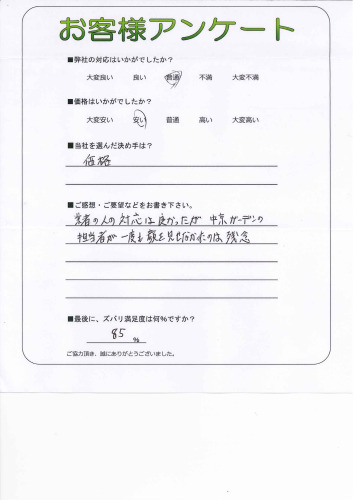 お客様アンケート
■弊社の対応はいかがでしたか?
大変良い 良い 普通 不満 大変不満
■価格はいかがでしたか?
大変安い 安い 普通 高い 大変高い
■当社を選んだ決め手は?
価格
■ご感想・ご要望などをお書き下さい。
業者の人の対応は良かったが 中京ガーデンの
担当者が一度も顔を見せなかったのは残念
■最後に、ズバリ満足度は何%ですか?
85 %
ご協力頂き、誠にありがとうございました。